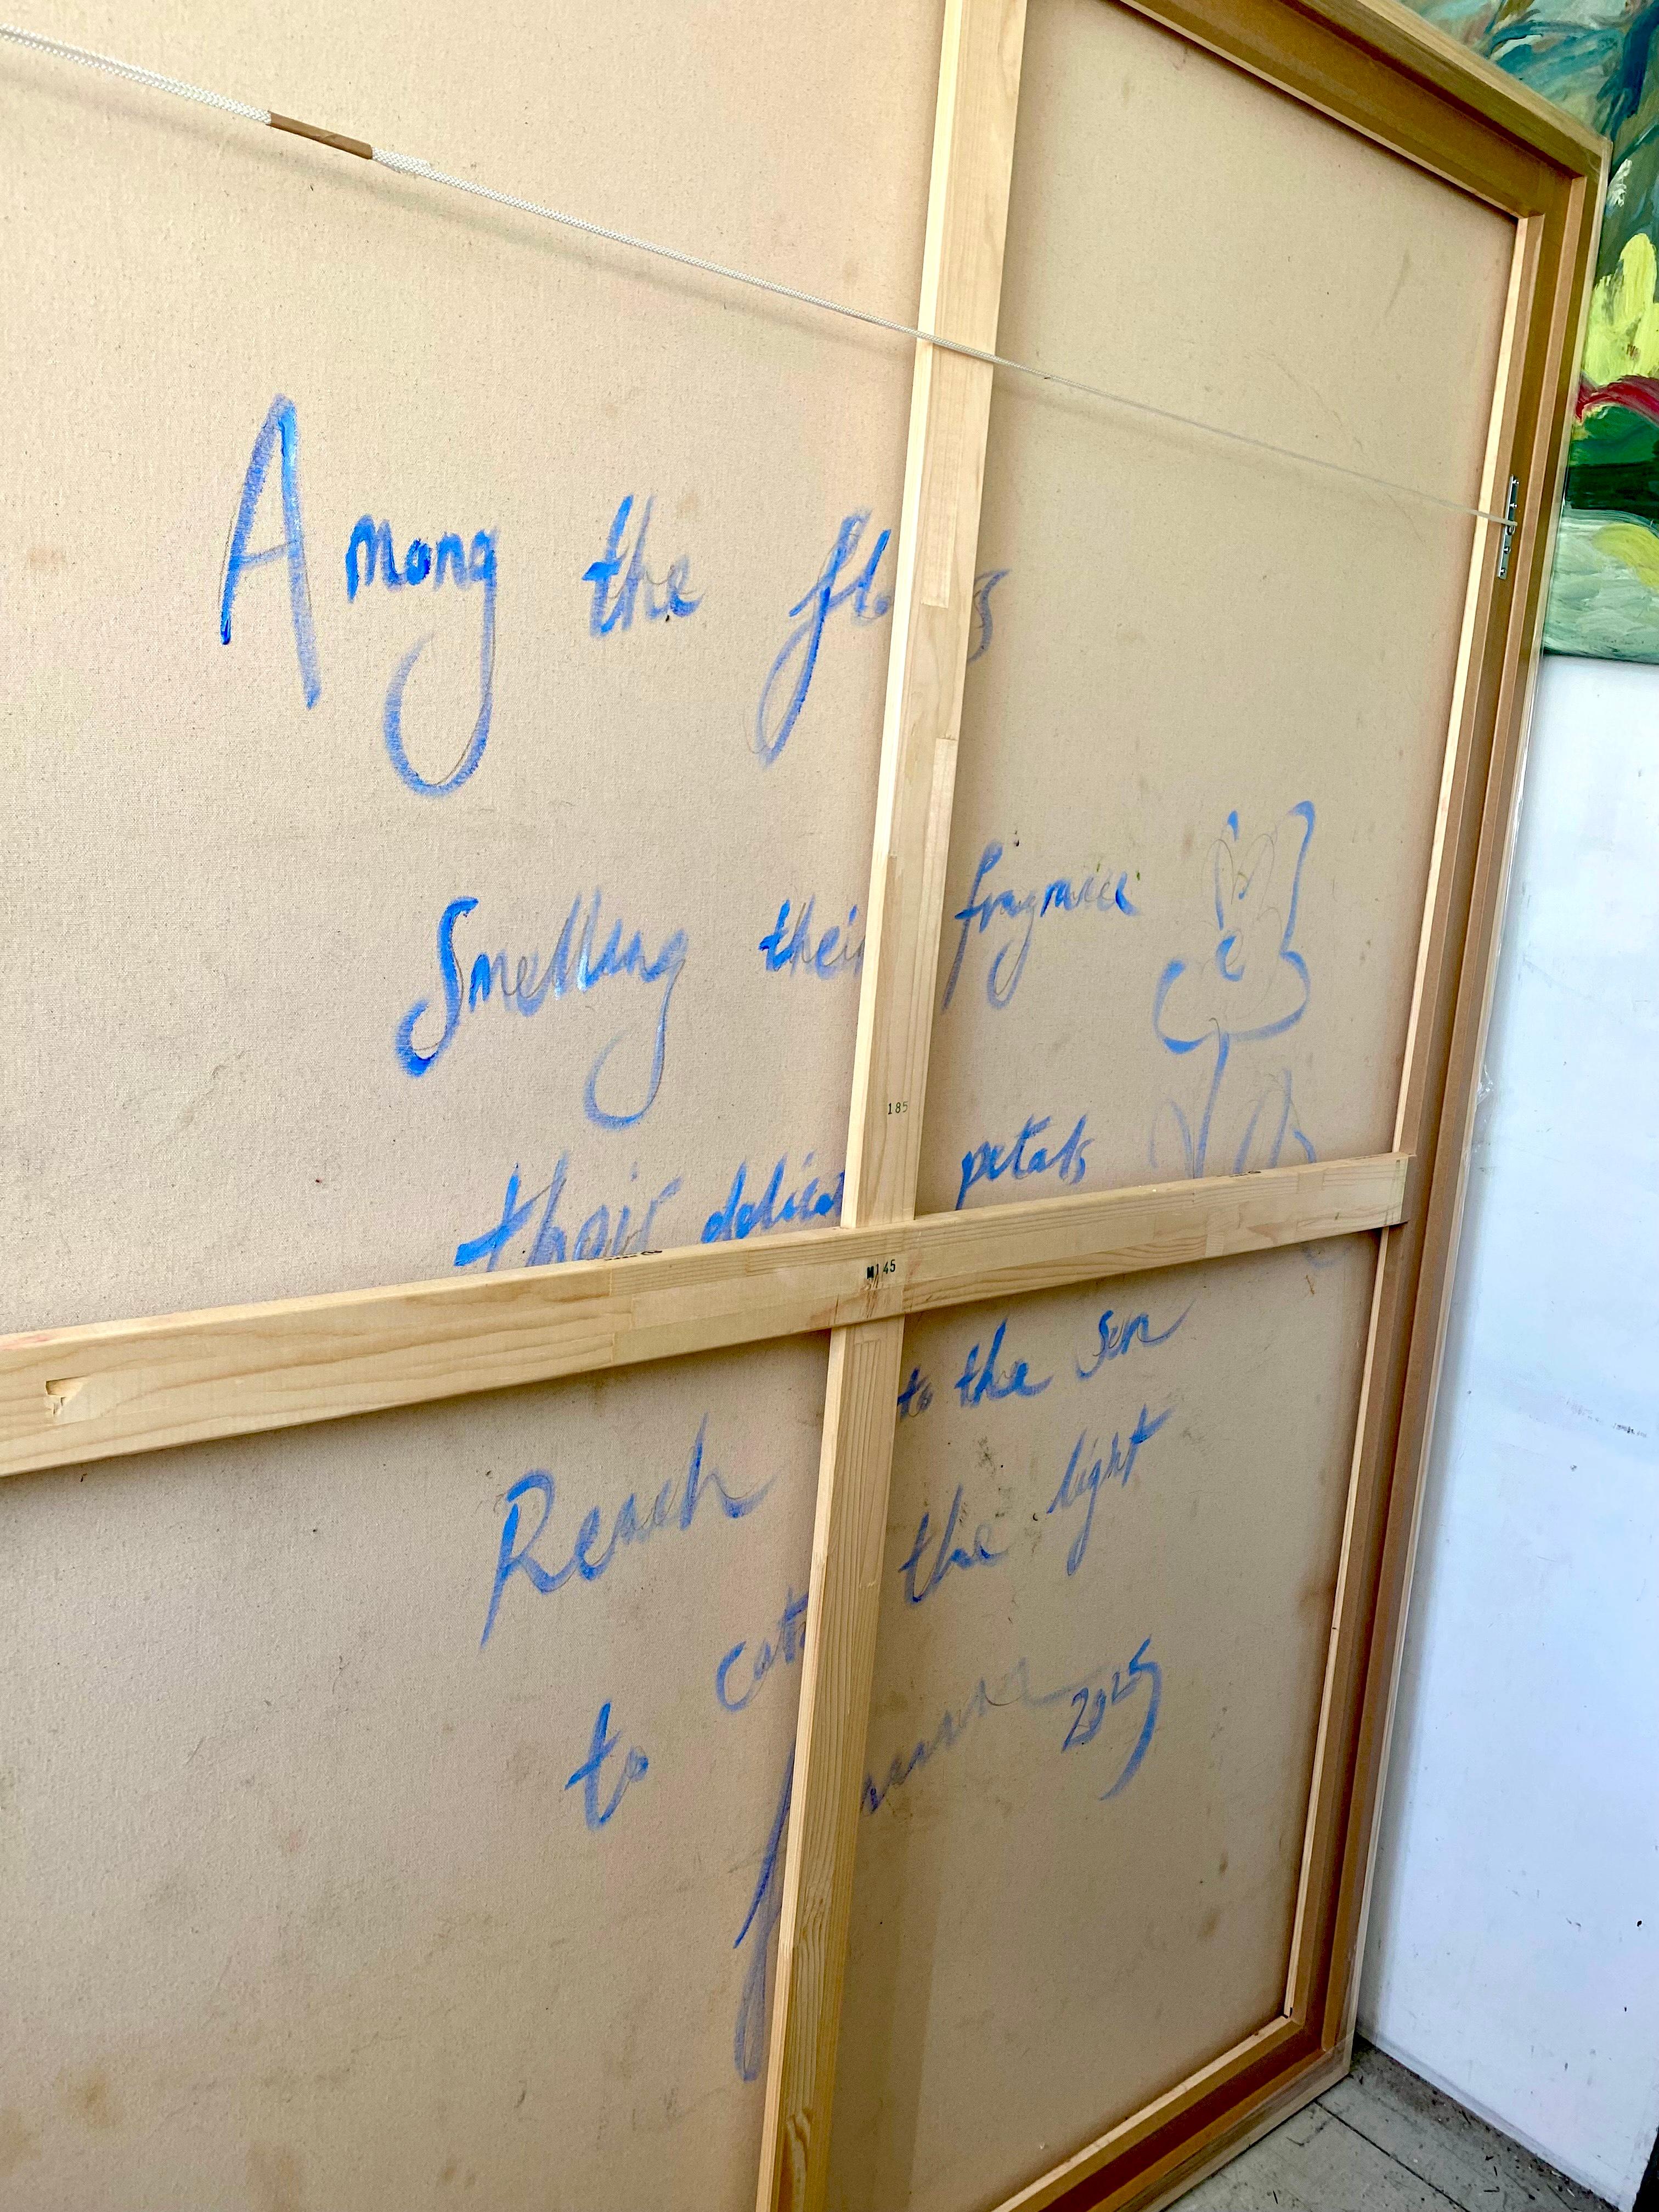 Among the fl s
Smelling their fragrance
their delicat petals
Reach to the Sun
to cat the light
2025
185
M145